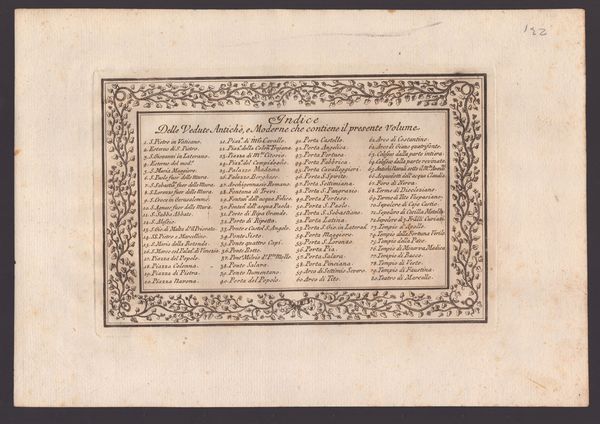 132
Indice
Delle Vedute Antiche, e Moderne che contiene il presente Volume.
1. S. Pietro in Vaticano.
2. Esterno di S. Pietro.
3. S. Giovanni in Laterano.
4. Esterno del med.º
5. S. Maria Maggiore.
6. S. Paolo fuor delle Mura.
7. S. Sebast.º fuor delle Mura.
8. S. Lorenzo fuor delle Mura.
9. S. Croce in Gerusalemme.
10. S. Agnese fuor delle Mura.
11. S. Sabba Abbate.
12. S. Alessio.
13. S. Gio. di Malta d.º il Priorato
14. SS. Pietro e Marcellino.
15. S. Maria della Rotonda.
16. S. Marco col Palaz. di Venezia
17. Piazza del Popolo.
18. Piazza Colonna.
19. Piazza di Pietra.
20. Piazza Navona.
21. Piaz. di M. Cavallo.
22. Piaz. della Colon. Trajana.
23. Piazza di M. Citorio.
24. Piaz. del Campidoglio.
25. Palazzo Madama.
26. Palazzo Borghese.
27. Archiginnasio Romano.
28. Fontana di Trevi.
29. Fontan. dell' acqua Felice.
30. Fontan. dell' acqua Paola.
31. Porto di Ripa Grande.
32. Porto di Ripetta.
33. Ponte e Castel S. Angelo.
34. Ponte Sisto.
35. Ponte quattro Capi.
36. Ponte Rotto.
37. Pont. Milvio d.º P. Molle.
38. Ponte Salara.
39. Ponte Numentano.
40. Porta del Popolo.
41. Porta Castello.
42. Porta Angelica.
43. Porta Pertusa.
44. Porta Fabbrica.
45. Porta Cavalleggieri.
46. Porta S. Spirito.
47. Porta Settimiana.
48. Porta S. Pangrazio.
49. Porta Portese.
50. Porta S. Paolo.
51. Porta S. Sebastiano.
52. Porta Latina.
53. Porta S. Gio. in Laterano
54. Porta Maggiore.
55. Porta S. Lorenzo.
56. Porta Pia.
57. Porta Salara.
58. Porta Pinciana.
59. Arco di Settimio Severo.
60. Arco di Tito.
61. Arco di Costantino.
62. Arco di Giano quatrifonte.
63. Coliseo dalla parte intiera.
64. Coliseo dalla parte rovinata.
66. Acquidotti dell' acqua Claudia.
67. Foro di Nerva.
68. Terme di Diocleziano.
69. Terme di Tito Vespasiano.
70. Sepolcro di Cajo Cestio.
71. Sepolcro di Cecilia Metella.
72. Sepolcro d.º i Frat. Curiazi.
73. Tempio d' Apollo.
74. Tempio della Fortuna Virile.
75. Tempio della Pace.
76. Tempio di Minerva Medica.
77. Tempio di Bacco.
78. Tempio di Vesta.
79. Tempio di Faustina.
80. Teatro di Marcello.